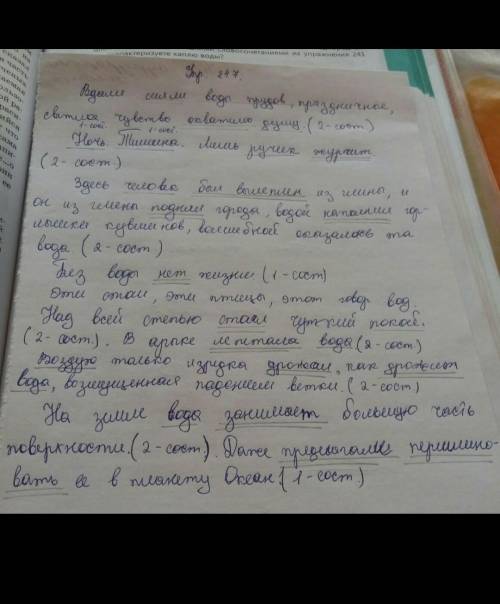 словосочетаниями из упражнения 241
характеризуете каплю воды?
Упр. 247.
Вдали сияли воды прудов, праздничное,
светлое чувство охватило душу. (2-сост)
1-сост. 1-сост.
Ночь. Тишина. Лишь ручек журчит
(2-сост.)
Здесь человек был вылеплен из глины, и
он из глины поднял города, водой наполнил гор-
лышки кувшинов, волшебной оказалась та
вода (2-сост)
Без воды нет жизни (1-сост)
Эти стаи, эти птицы, этот говор вод.
Над всей степью стоял чуткий покой.
(2-сост). В арыке лепетала вода (2-сост)
Воздух только изредка дрожал, как дрожит
вода, возмущенная падением ветки. (2-сост)
На земле вода занимает большую часть
поверхности. (2-сост). Даже предлагали переимено-
вать ее в планету Океан. (1-сост)